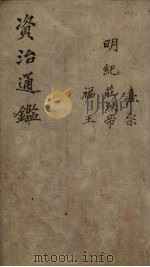 明紀
熹宗
莊烈帝
福王
資治通鑑